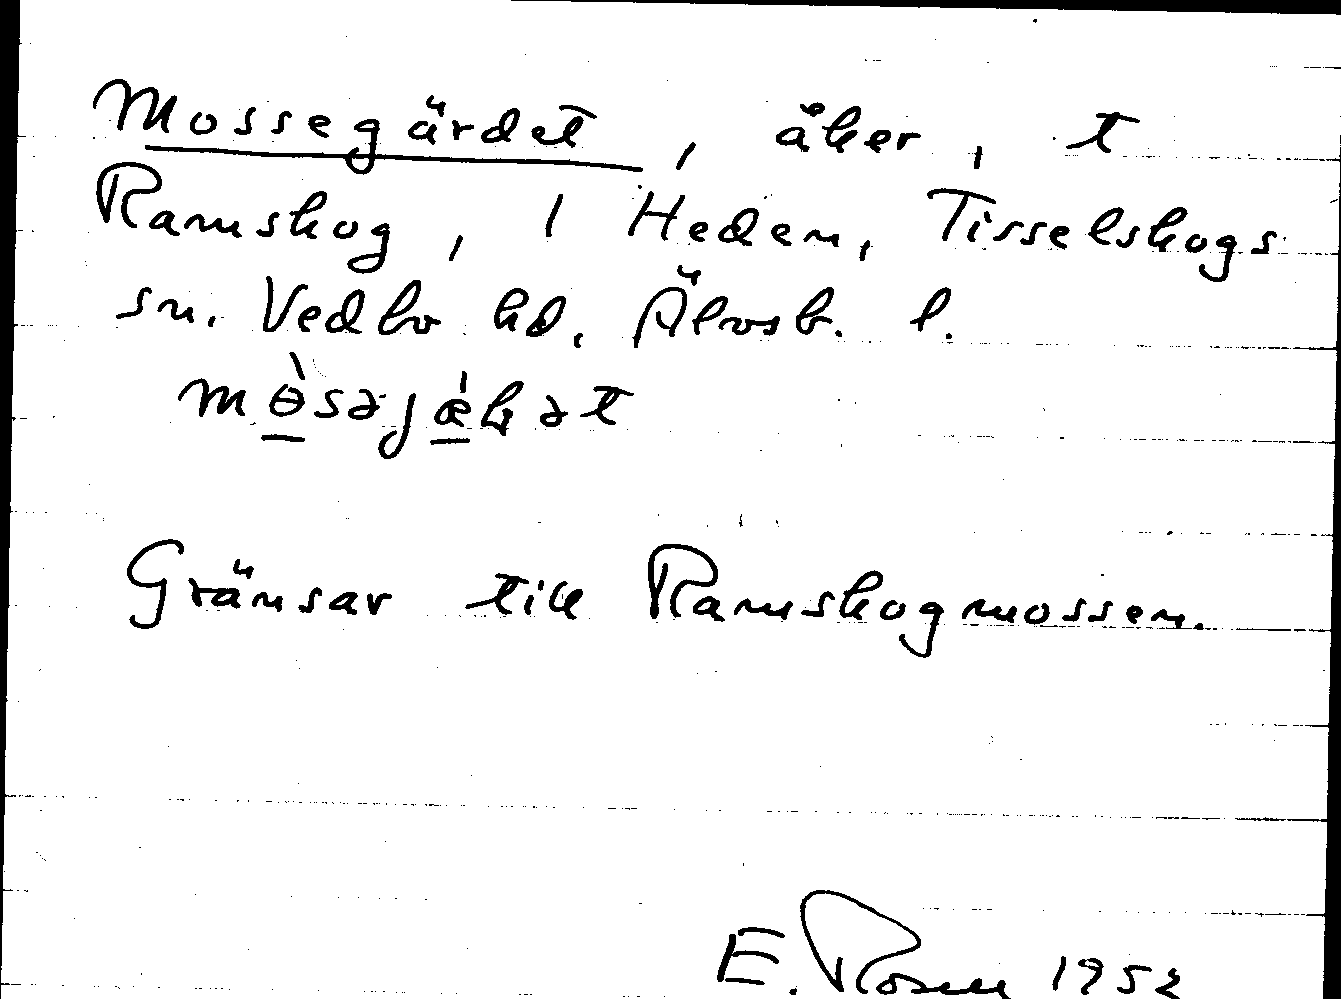 Mossegärdet, åker, t
Ramskog, 1 Heden, Tisselskogs
sn. Vedbo hd. Älvsb. l.
Gränsar till Ramskogmossen.
E. Rosen 1952